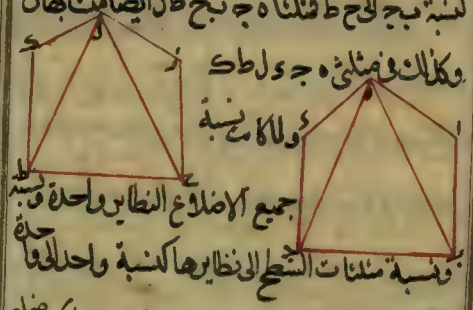 كنسبة ب ج الى ح ط فمثلثا ه ج ب ل ح ط ايضا متشابهان
وكذلك فى مثلثى ه ج د ل ط ك
ولما كانت نسبة
جميع الاضلاع النظاير واحدة ونسبة
ونسبة مثلثات السطح الى نظايرها كنسبة واحد الى واحدة
ك
ل
ز
ط
ح
د
ه
ا
ج
ب